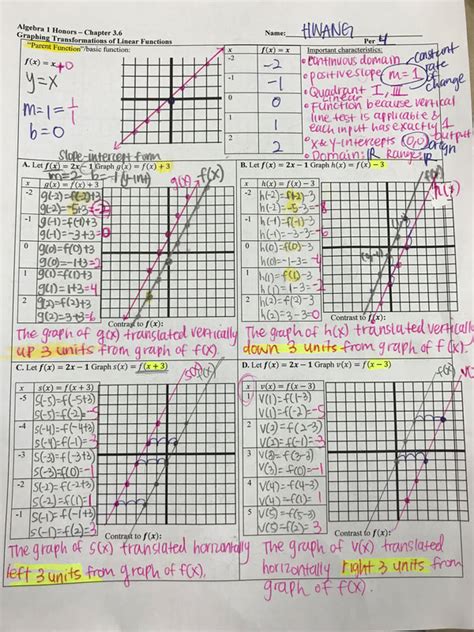 Algebra 1 Honors – Chapter 3.6
Graphing Transformations of Linear Functions
Name: HWANG
Per 4
"Parent Function"/basic function:
f(x) = x+0
y=x
m=1=1/1
b=0
x f(x) = x
-2 -2
-1 -1
0 0
1 1
2 2
Important characteristics:
• continuous domain
• positive slope m=1 constant rate of change
• Quadrant I, III
• Linear Function because vertical
line test is applicable &
each input has exactly 1 output
• x & y-intercepts (0,0) origin
• Domain: ℝ Range: ℝ
Slope-intercept form
A. Let f(x) = 2x − 1 Graph g(x) = f(x) + 3
m=2 b=-1 (y-int)
x g(x) = f(x) + 3
-2 g(-2)=f(-2)+3
g(-2)=-5+3=-2
-1 g(-1)=f(-1)+3
g(-1)=-3+3=0
0 g(0)=f(0)+3
g(0)=-1+3=2
1 g(1)=f(1)+3
g(1)=1+3=4
2 g(2)=f(2)+3
g(2)=3+3=6
g(x) f(x)
Contrast to f(x):
The graph of g(x) translated vertically
up 3 units from graph of f(x).
B. Let f(x) = 2x − 1 Graph h(x) = f(x) − 3
x h(x) = f(x) − 3
-2 h(-2)=f(-2)-3
h(-2)=-5-3=-8
-1 h(-1)=f(-1)-3
h(-1)=-3-3=-6
0 h(0)=f(0)-3
h(0)=-1-3=-4
1 h(1)=f(1)-3
h(1)=1-3=-2
2 h(2)=f(2)-3
h(2)=3-3=0
f(x) h(x)
Contrast to f(x):
The graph of h(x) translated vertically
down 3 units from graph of f(x).
C. Let f(x) = 2x − 1 Graph s(x) = f(x + 3)
x s(x) = f(x + 3)
-5 s(-5)=f(-5+3)
s(-5)=f(-2)=-5
-4 s(-4)=f(-4+3)
s(-4)=f(-1)=-3
-3 s(-3)=f(-3+3)
s(-3)=f(0)=-1
-2 s(-2)=f(-2+3)
s(-2)=f(1)=1
-1 s(-1)=f(-1+3)
s(-1)=f(2)=3
s(x) f(x)
Contrast to f(x):
The graph of s(x) translated horizontally
left 3 units from graph of f(x).
D. Let f(x) = 2x − 1 Graph v(x) = f(x − 3)
x v(x) = f(x − 3)
1 v(1)=f(1-3)
v(1)=f(-2)=-5
2 v(2)=f(2-3)
v(2)=f(-1)=-3
3 v(3)=f(3-3)
v(3)=f(0)=-1
4 v(4)=f(4-3)
v(4)=f(1)=1
5 v(5)=f(5-3)
v(5)=f(2)=3
f(x) v(x)
Contrast to f(x):
The graph of v(x) translated
horizontally right 3 units from
graph of f(x).